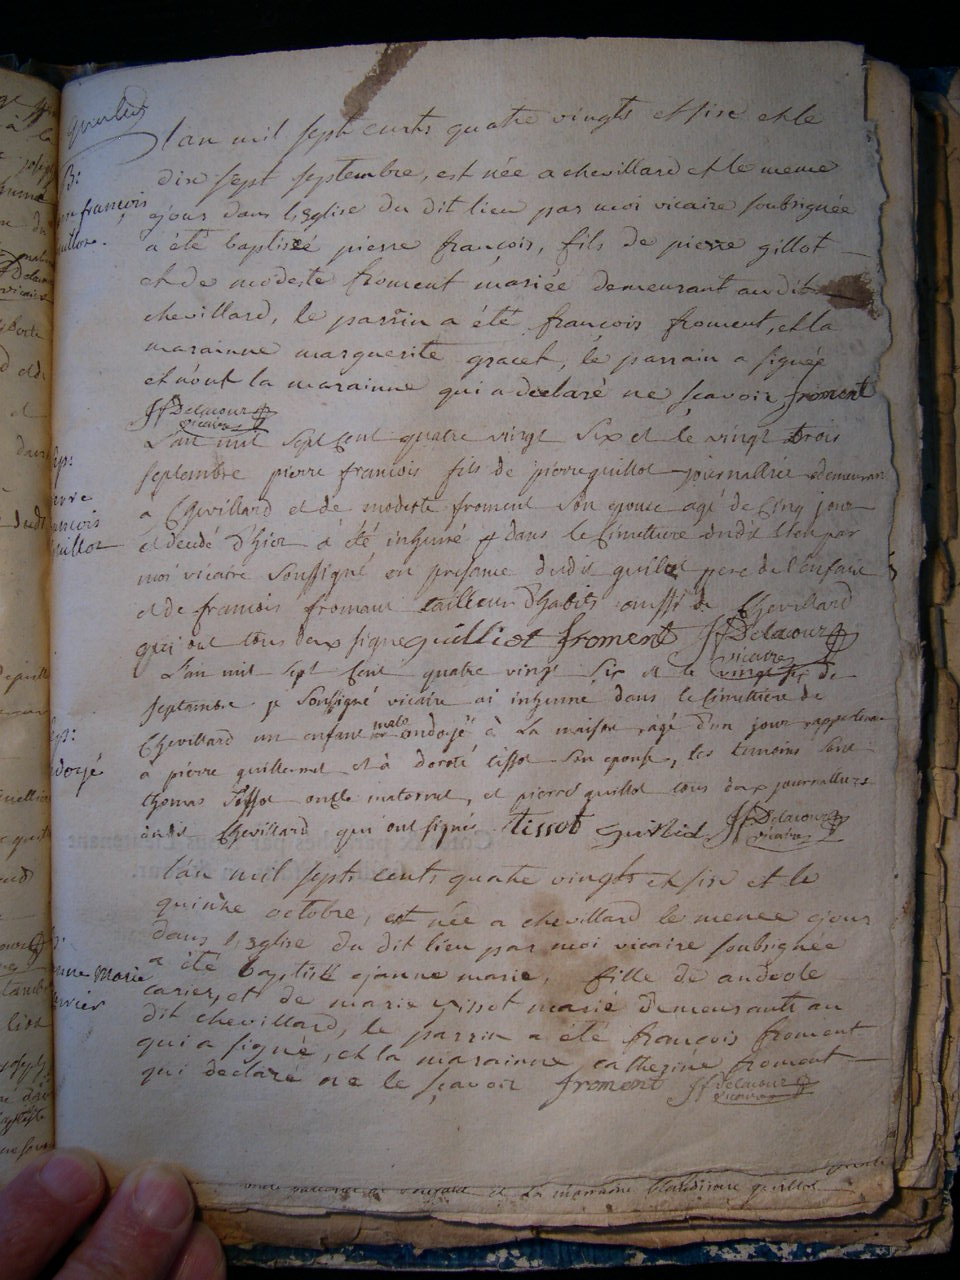 l'an mil sept cents quatre vingts et six et le
B:
dix sept septembre, est née a chevillard et le meme
françois
ojour dans l'Eglise du dit lieu par moi vicaire soubsignée
a été baptisé pierre françois, fils de pierre gillot
et de modeste froment mariée demeurant au dit
chevillard, le parrin a été françois froment, et la
marainne marguerite gracet, le parrain a signée
et non la marainne qui a declaré ne sçavoir froment
JfDelacour
vicaire
L'an mil sept Cent quatre vingt six et le vingt trois
septembre pierre francois fils de pierre guillot journallier demeuran
a Chevillard et de modeste froment son epouse agé de Cinq jour
et decedé d'hier a été inhumé dans le Cimettiere dudit lieu par
guillot
moi vicaire soussigné en presance dudit guillot pere de l'enfant
et de francois fromant tailleur d'habits aussi de Chevillard
qui ont tous deux signe guilliot froment JfDelacour
vicaire
L'an mil sept Cent quatre vingt six et le vingt six de
septambre je soussigné vicaire ai inhumé dans le Cimettiere de
Chevillard un enfant male ondojé à La maison, agé d'un jour appartena
a pierre guillermet et à doroté tissot son epouse, les temoins sont
thomas tissot oncle maternel, et pierre guillot tous deux journalliers
dudit Chevillard qui ont signés tissot JfDelacour
vicaire
l'an mil septs cents quatre vingts et six et le
quinze octobre, est née a chevillard le meme ojour
dans l'Eglise du dit lieu par moi vicaire soubsignée
a été baptisé ojanne marie, fille de andeole
Marie
carier, et de marie tissot marié demeurants au
dit chevillard, le parrin a été françois froment
qui a signé, et la marainne catherine froment
qui declaré ne le sçavoir froment Jfdelacour
vicaire
et La maraine guillot